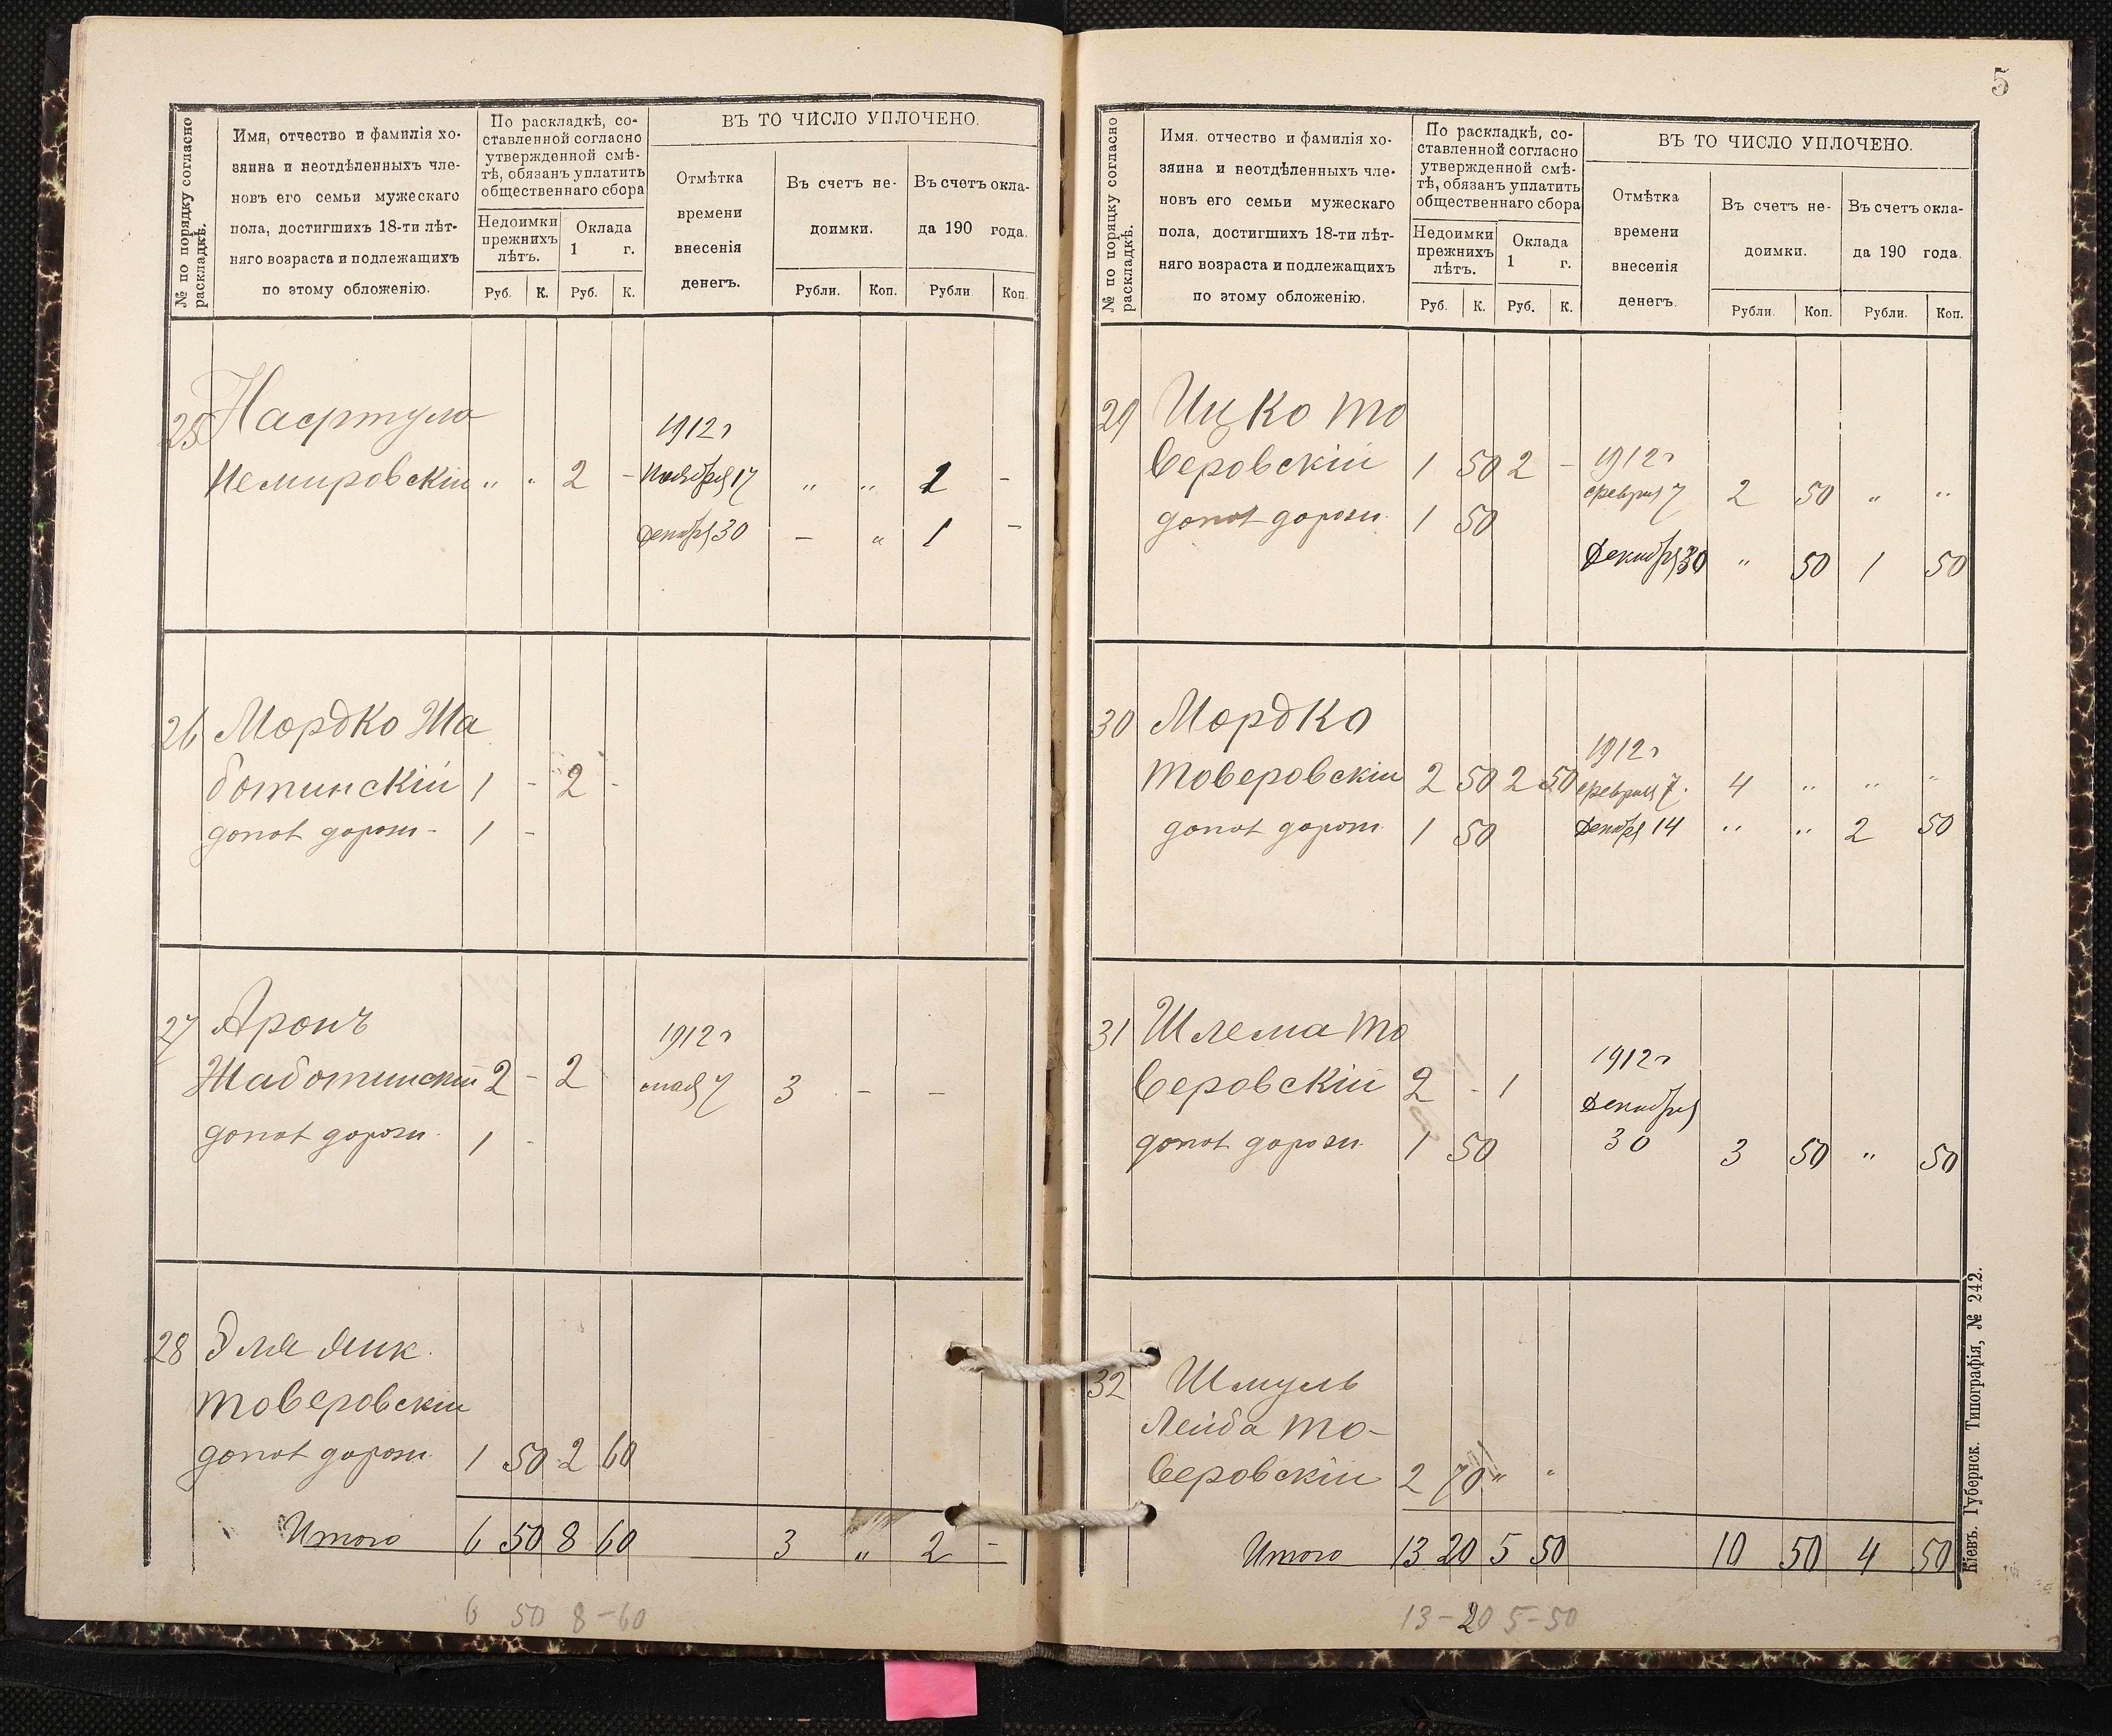 5
№ по порядку согласно
раскладкѣ.
Имя, отчество и фамилія хо-
зяина и неотдѣленныхъ чле-
новъ его семьи мужескаго
пола, достигшихъ 18-ти лѣт-
няго возраста и подлежащихъ
по этому обложенію.
По раскладкѣ, со-
ставленной согласно
утвержденной смѣ-
тѣ, обязанъ уплатить
общественнаго сбора
Недоимки
прежнихъ
лѣтъ.
Оклада
1 г.
Руб. К. Руб. К.
ВЪ ТО ЧИСЛО УПЛОЧЕНО.
Отмѣтка
времени
внесенія
денегъ.
Въ счетъ не-
доимки.
Въ счетъ окла-
да 190 года.
Рубли. Коп. Рубли Коп.
25 Нафтула
1912 г
Немировскій " " 2 - Ноября 17 " " 1 -
Декабря 30 - " 1 -
26 Мордко Жа
ботинскій 1 - 2 -
допол дорожн - 1 -
27 Аронъ
1912 г
Жаботинскій 2 - 2 мая 7 3 - -
допол дорожн. 1 -
28 Эля Янк.
Товеровскій
допол дорожн. 1 50 2 60
Итого 6 50 8 60 3 " 2 -
6 50 8-60
№ по порядку согласно
раскладкѣ.
Имя. отчество и фамилія хо-
зяина и неотдѣленныхъ чле-
новъ его семьи мужескаго
пола, достигшихъ 18-ти лѣт-
няго возраста и подлежащихъ
по этому обложенію.
По раскладкѣ, со-
ставленной согласно
утвержденной смѣ-
тѣ, обязанъ уплатить
общественнаго сбора
Недоимки
прежнихъ
лѣтъ.
Оклада
1 г.
Руб. К. Руб. К.
ВЪ ТО ЧИСЛО УПЛОЧЕНО.
Отмѣтка
времени
внесенія
денегъ.
Въ счетъ не-
доимки.
Въ счетъ окла-
да 190 года.
Рубли. Коп. Рубли. Коп.
29 Ицко То
веровскій 1 50 2 - 1912 г
февраля 7 2 50 " "
допол дорожн. 1 50
Декабря 30 " 50 1 50
30 Мордко
1912 г
Товеровскій 2 50 2 50 февраля 7. 4 " " "
допол дорожн. 1 50 Декабря 14 " " 2 50
31 Шлема То
1912 г
веровскій 2 - 1 Декабря
допол дорожн. 1 50 30 3 50 " 50
32 Шмуль
Лейба То-
веровскій 2 70 " "
Итого 13 20 5 50 10 50 4 50
13-20 5-50
Кіевъ. Губернск. Типографія, № 242.